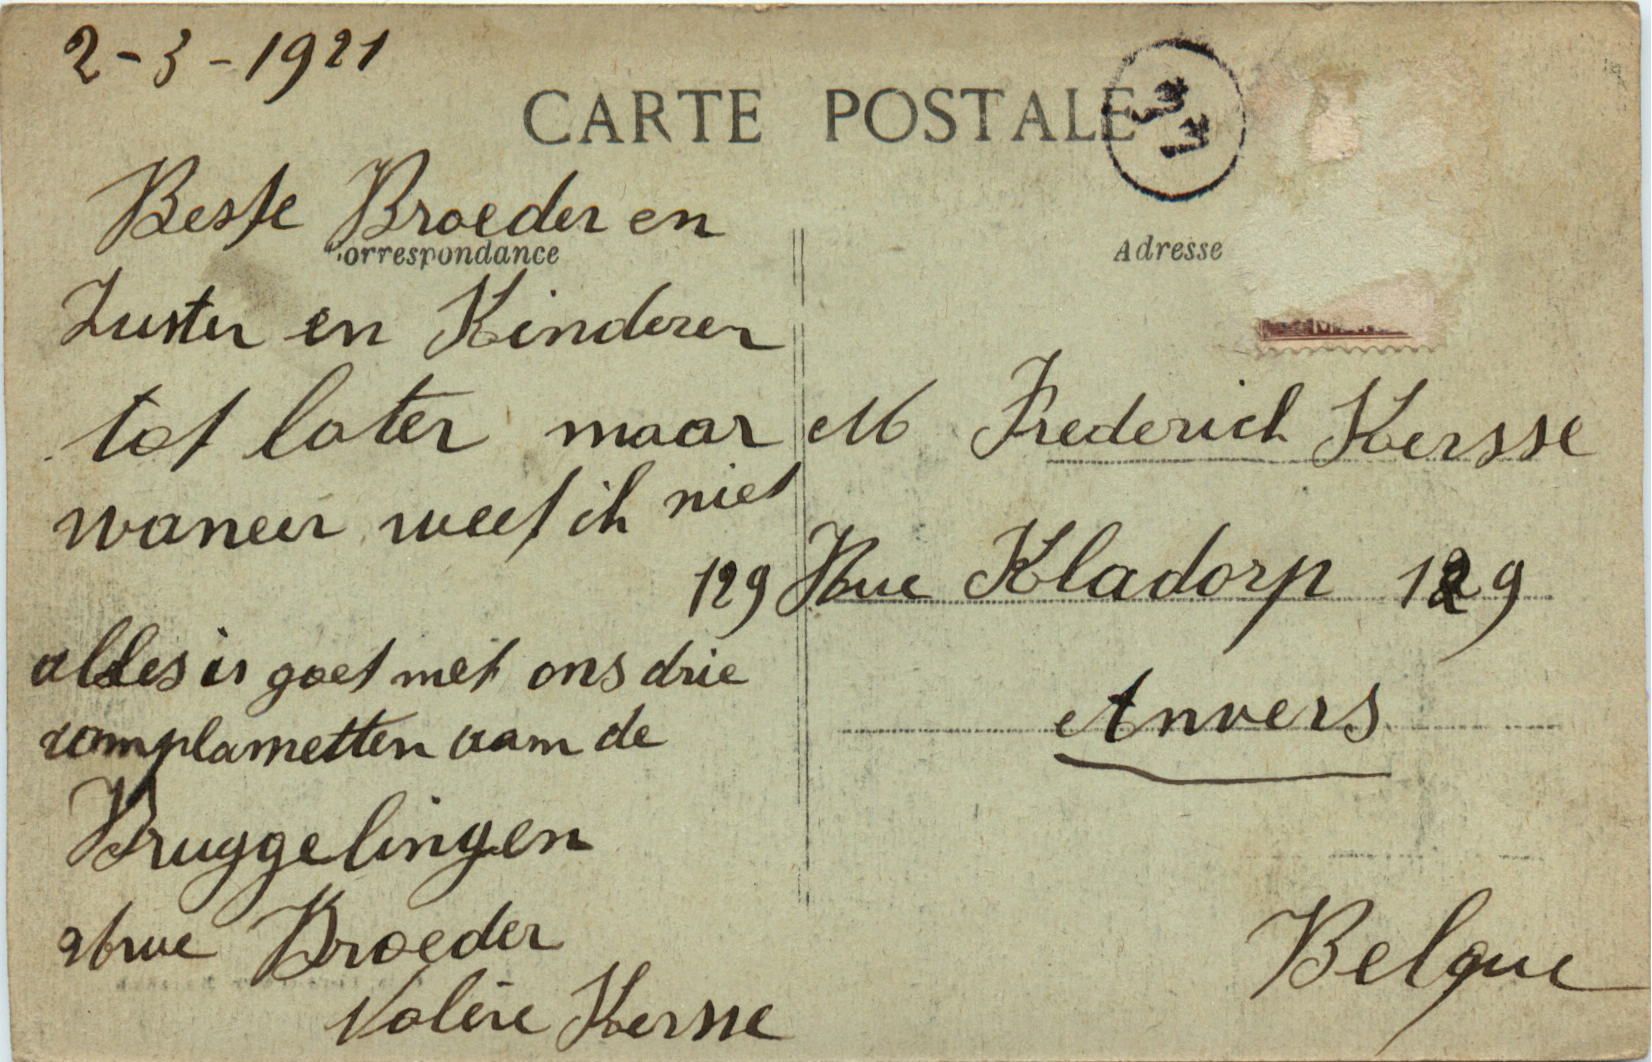 2-3-1921
CARTE POSTALE
Correspondance
Beste Broeder en
Zuster en Kinderen
tot later maar
waneer weet ik niet
alles is goet met ons drie
complametten aam de
Bruggelingen
Broeder
Valère Kersse
Adresse
M Frederich Kersse
129 Rue Kladorp 129
Anvers
Belque